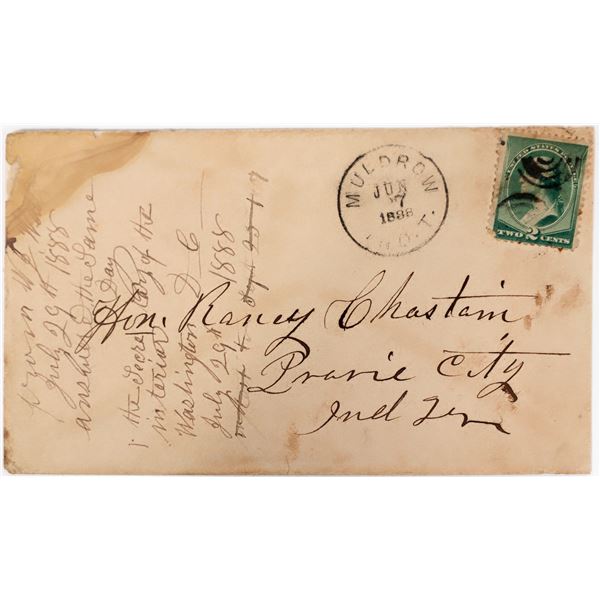 MULDROW
JUN
7
1888
IND. T.
TWO 2 CENTS
Hon. Raney Chastain
Pravie City
Ind Ter
from
July 29th 1888
answered the same
Day
the Secretary of the
interior
Washington D C
July 29th 1888